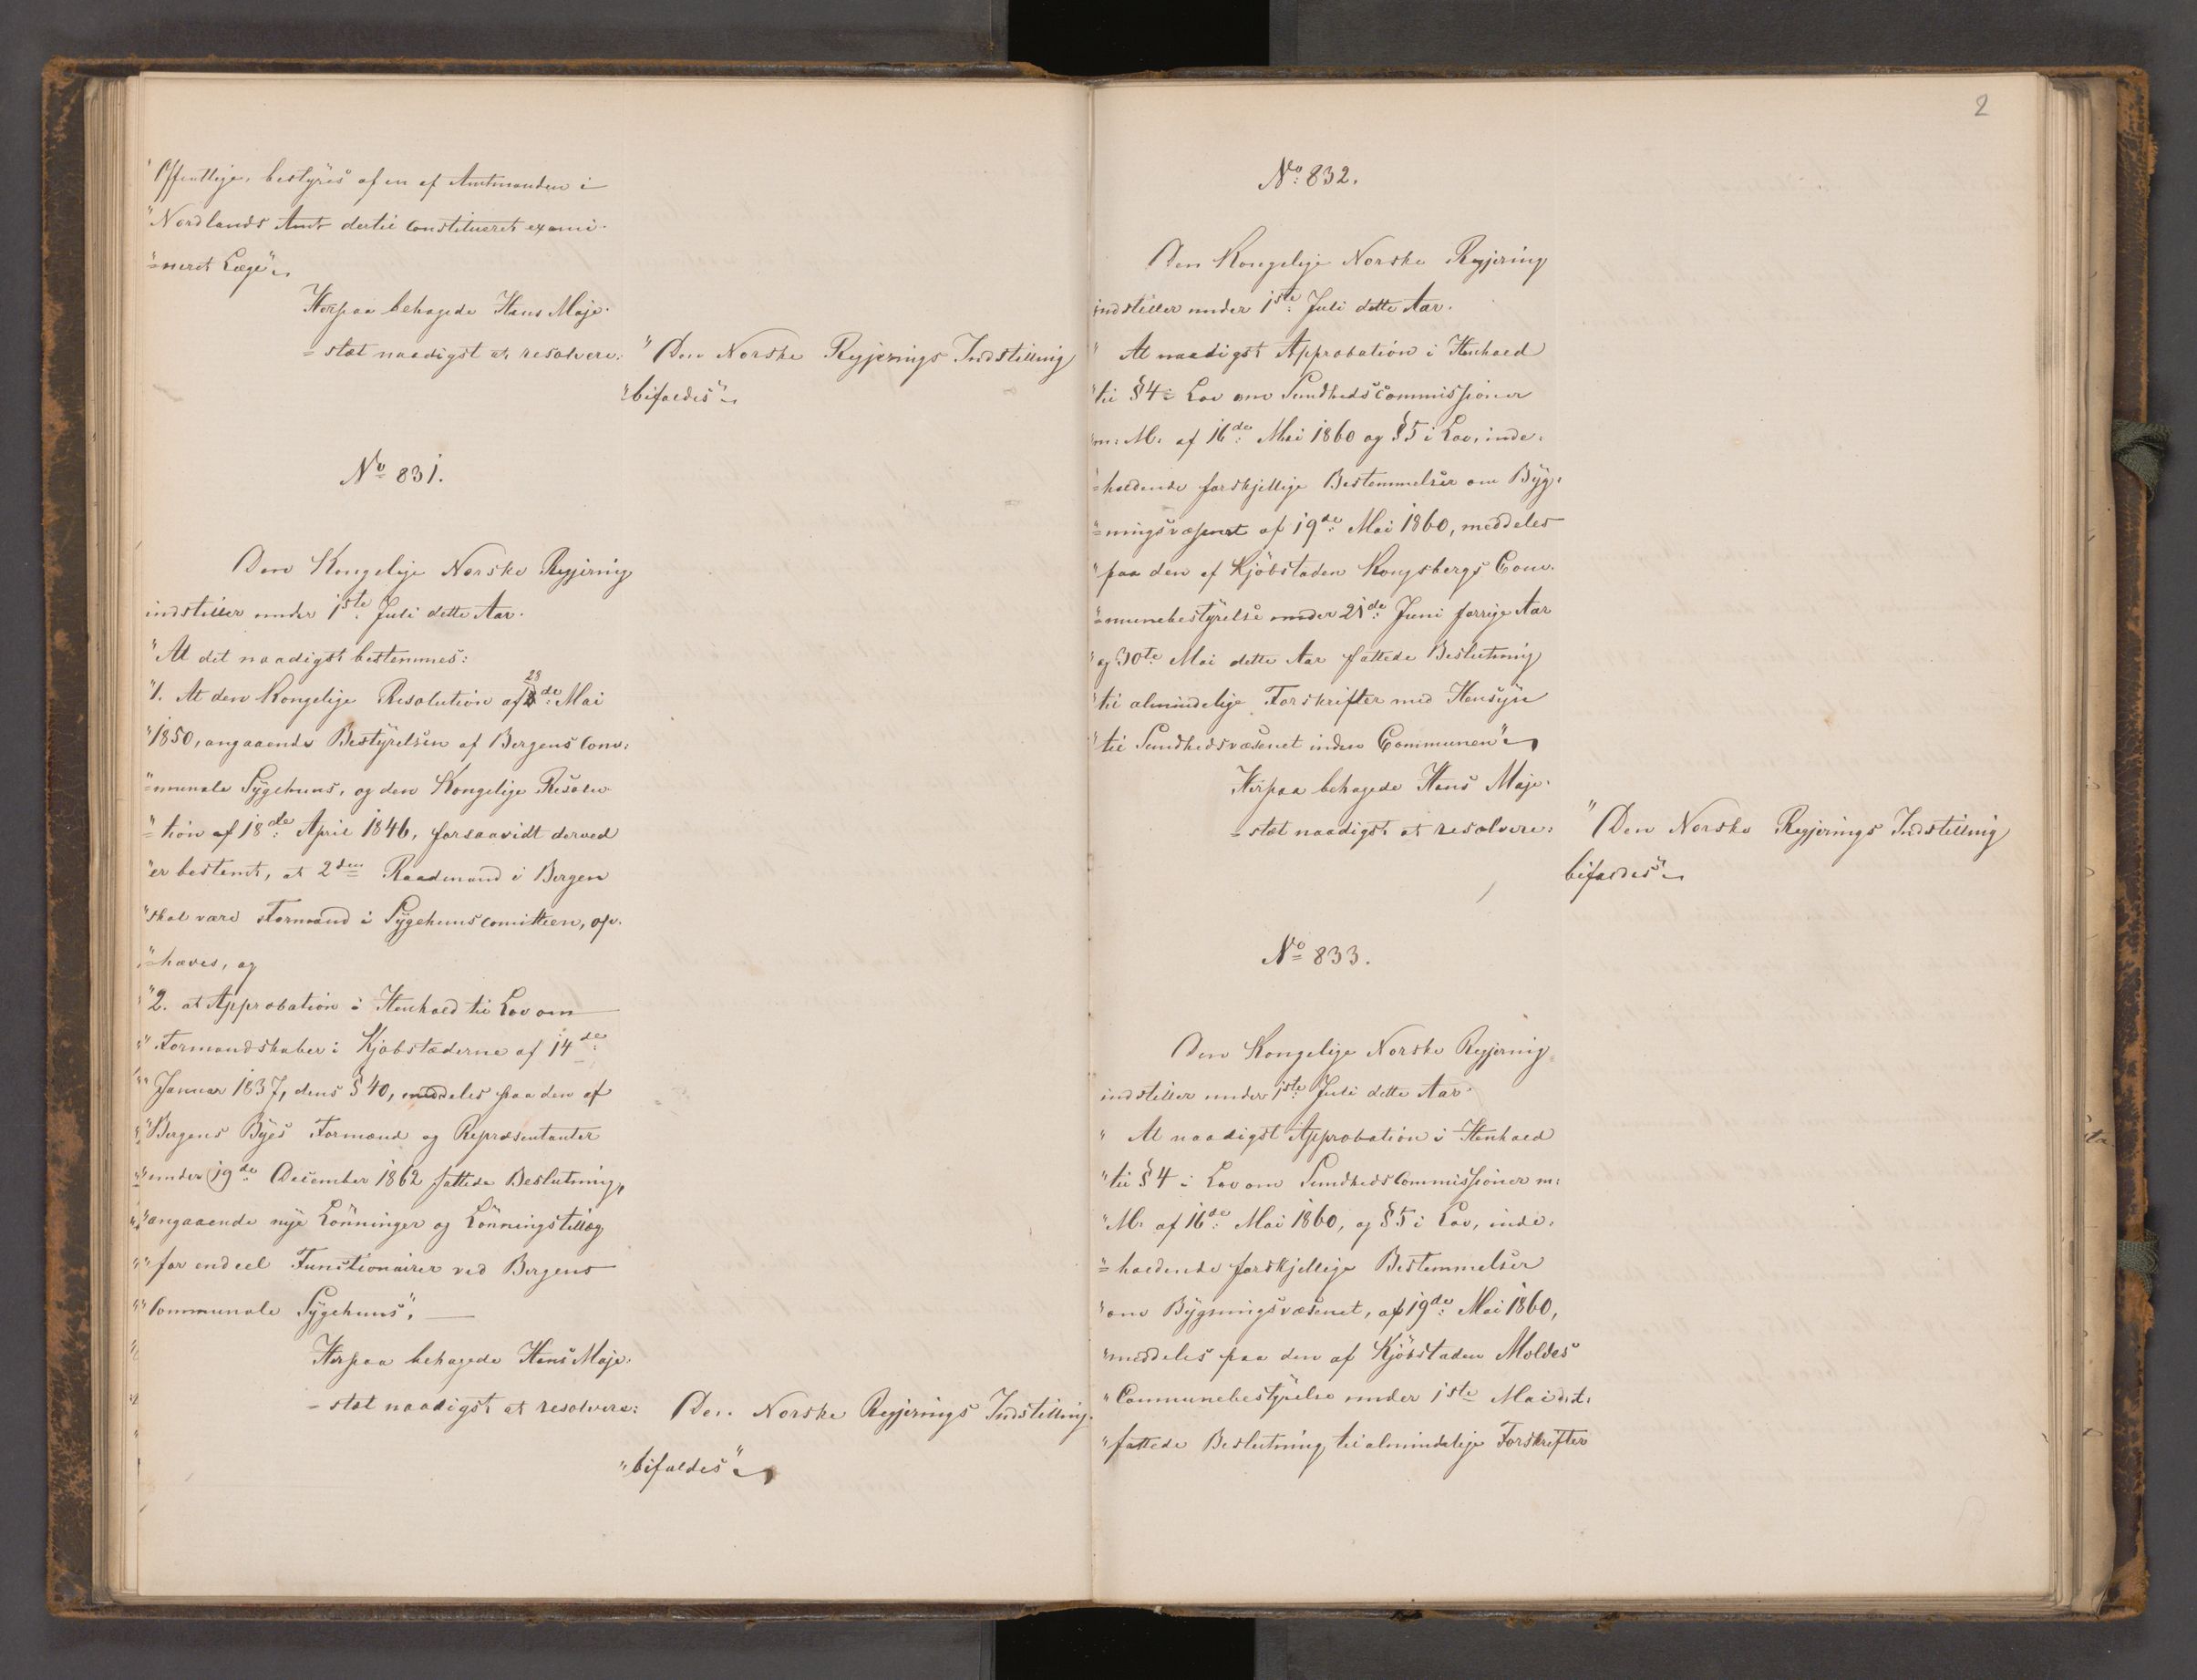 "Offentlige, bestyres af en af Amtmanden i
"Nordlands Amt dertil constitueret exami-
"=neret Læge"
Herpaa behagede Hans Maje-
=stæt naadigst at resolvere: "Den Norske Regjerings Indstilling
"bifaldes"
No 831.
Den Kongelige Norske Regjering
indstiller under 1ste Juli dette Aar.
"At det naadigst bestemmes:
"1. At den Kongelige Resolution af 28de Mai
"1850, angaaende Bestyrelsen af Bergens Com-
"=munale Sygehuus, og den Kongelige Resolu-
"=tion af 18de April 1846, forsaavidt derved
"er bestemt, at 2den Raadmand i Bergen
"skal være Formand i Sygehuuscomitteen, op-
"=hæves, og
"2. at Approbation i Henhold til Lov om
"Formandskaber i Kjøbstæderne af 14de
"Januar 1837, dens § 40, meddeles paa den af
"Bergens Byes Formænd og Repræsentanter
"under 19de December 1862 fattede Beslutning,
"angaaende nye Lönninger og Lönningstillæg
"for endeel Functionairer ved Bergens
"Communale Sygehuus".
Herpaa behagede Hans Maje-
=stæt naadigst at resolvere: Den Norske Regjerings Indstilling
"bifaldes"
2
No: 832.
Den Kongelige Norske Regjering
indstiller under 1ste Juli dette Aar.
"At naadigst Approbation i Henhold
"til § 4 i Lov om Sundhedscommissioner
"m: M: af 16de: Mai 1860 og § 5 i Lov, inde-
"=holdende forskjellige Bestemmelser om Byg-
"=ningsvæsenet af 19de: Mai 1860, meddeles
"paa den af Kjöbstaden Kongsbergs Com-
"=munebestyrelse under 21de: Juni forrige Aar
"og 30te Mai dette Aar fattede Beslutning
"til almindelige Forskrifter med Hensyn
"til Sundhedsvæsenet inden Communen"
Herpaa behagede Hans Maje-
=stæt naadigst at resolvere: "Den Norske Regjerings Indstilling
bifaldes"
No 833.
Den Kongelige Norske Regjering
indstiller under 1ste: Juli dette Aar.
"At naadigst Approbation i Henhold
"til § 4 i Lov om Sundhedscommissioner m:
"M. af 16de: Mai 1860, og § 5 i Lov, inde-
"=holdende forskjellige Bestemmelser
"om Bygningsvæsenet, af 19de: Mai 1860,
"meddeles paa den af Kjöbstaden Moldes
"Communebestyrelse under 1ste Mai d. A.
"fattede Beslutning til almindelige Forskrifter